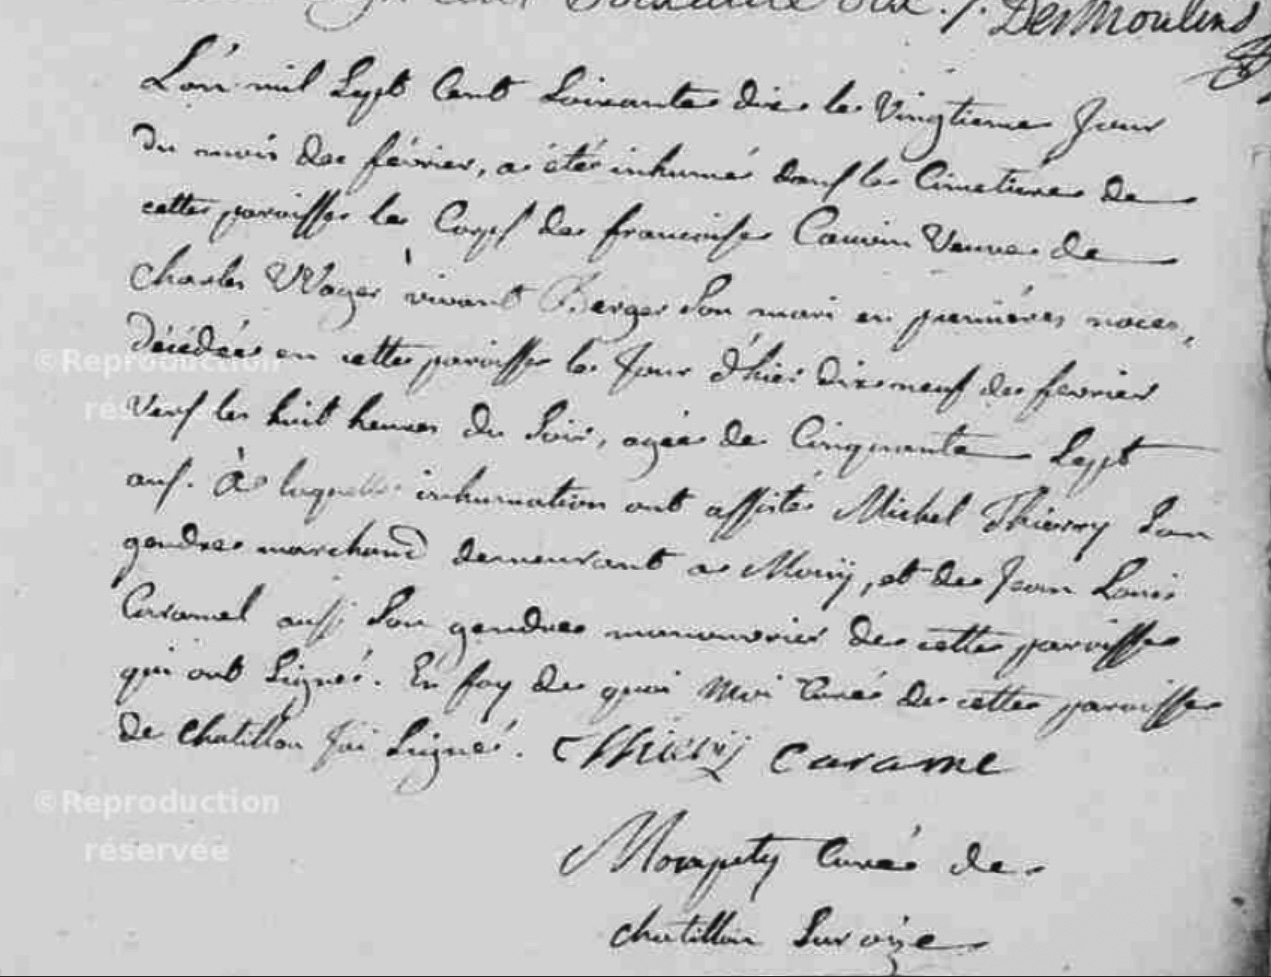 soixante dix. /. Desmoulins
L'an mil Sept Cent Soixante dix le vingtieme Jour
du mois de février, a été inhumé dans le Cimetiere de
cette paroisse le Corps de francoise Cauvin Veuve de
Charles Wager vivant Berger Son mari en premières noces,
décédée en cette paroisse le Jour d'hier dix neuf de fevrier
vers les huit heures du Soir, agée de Cinquante Sept
ans. À laquelle inhumation ont assisté Michel Thierry Son
gendre marchand demeurant a Mouy, et de Jean Louis
Caramel aussi Son gendre manouvrier de cette paroisse
qui ont Signé. En foy de quoi Moi Curé de cette paroisse
de Chatillon J'ai Signé. Thierry Carame
Curé de
chatillon Sur oize
©Reproduction
réservée
©Reproduction
réservée